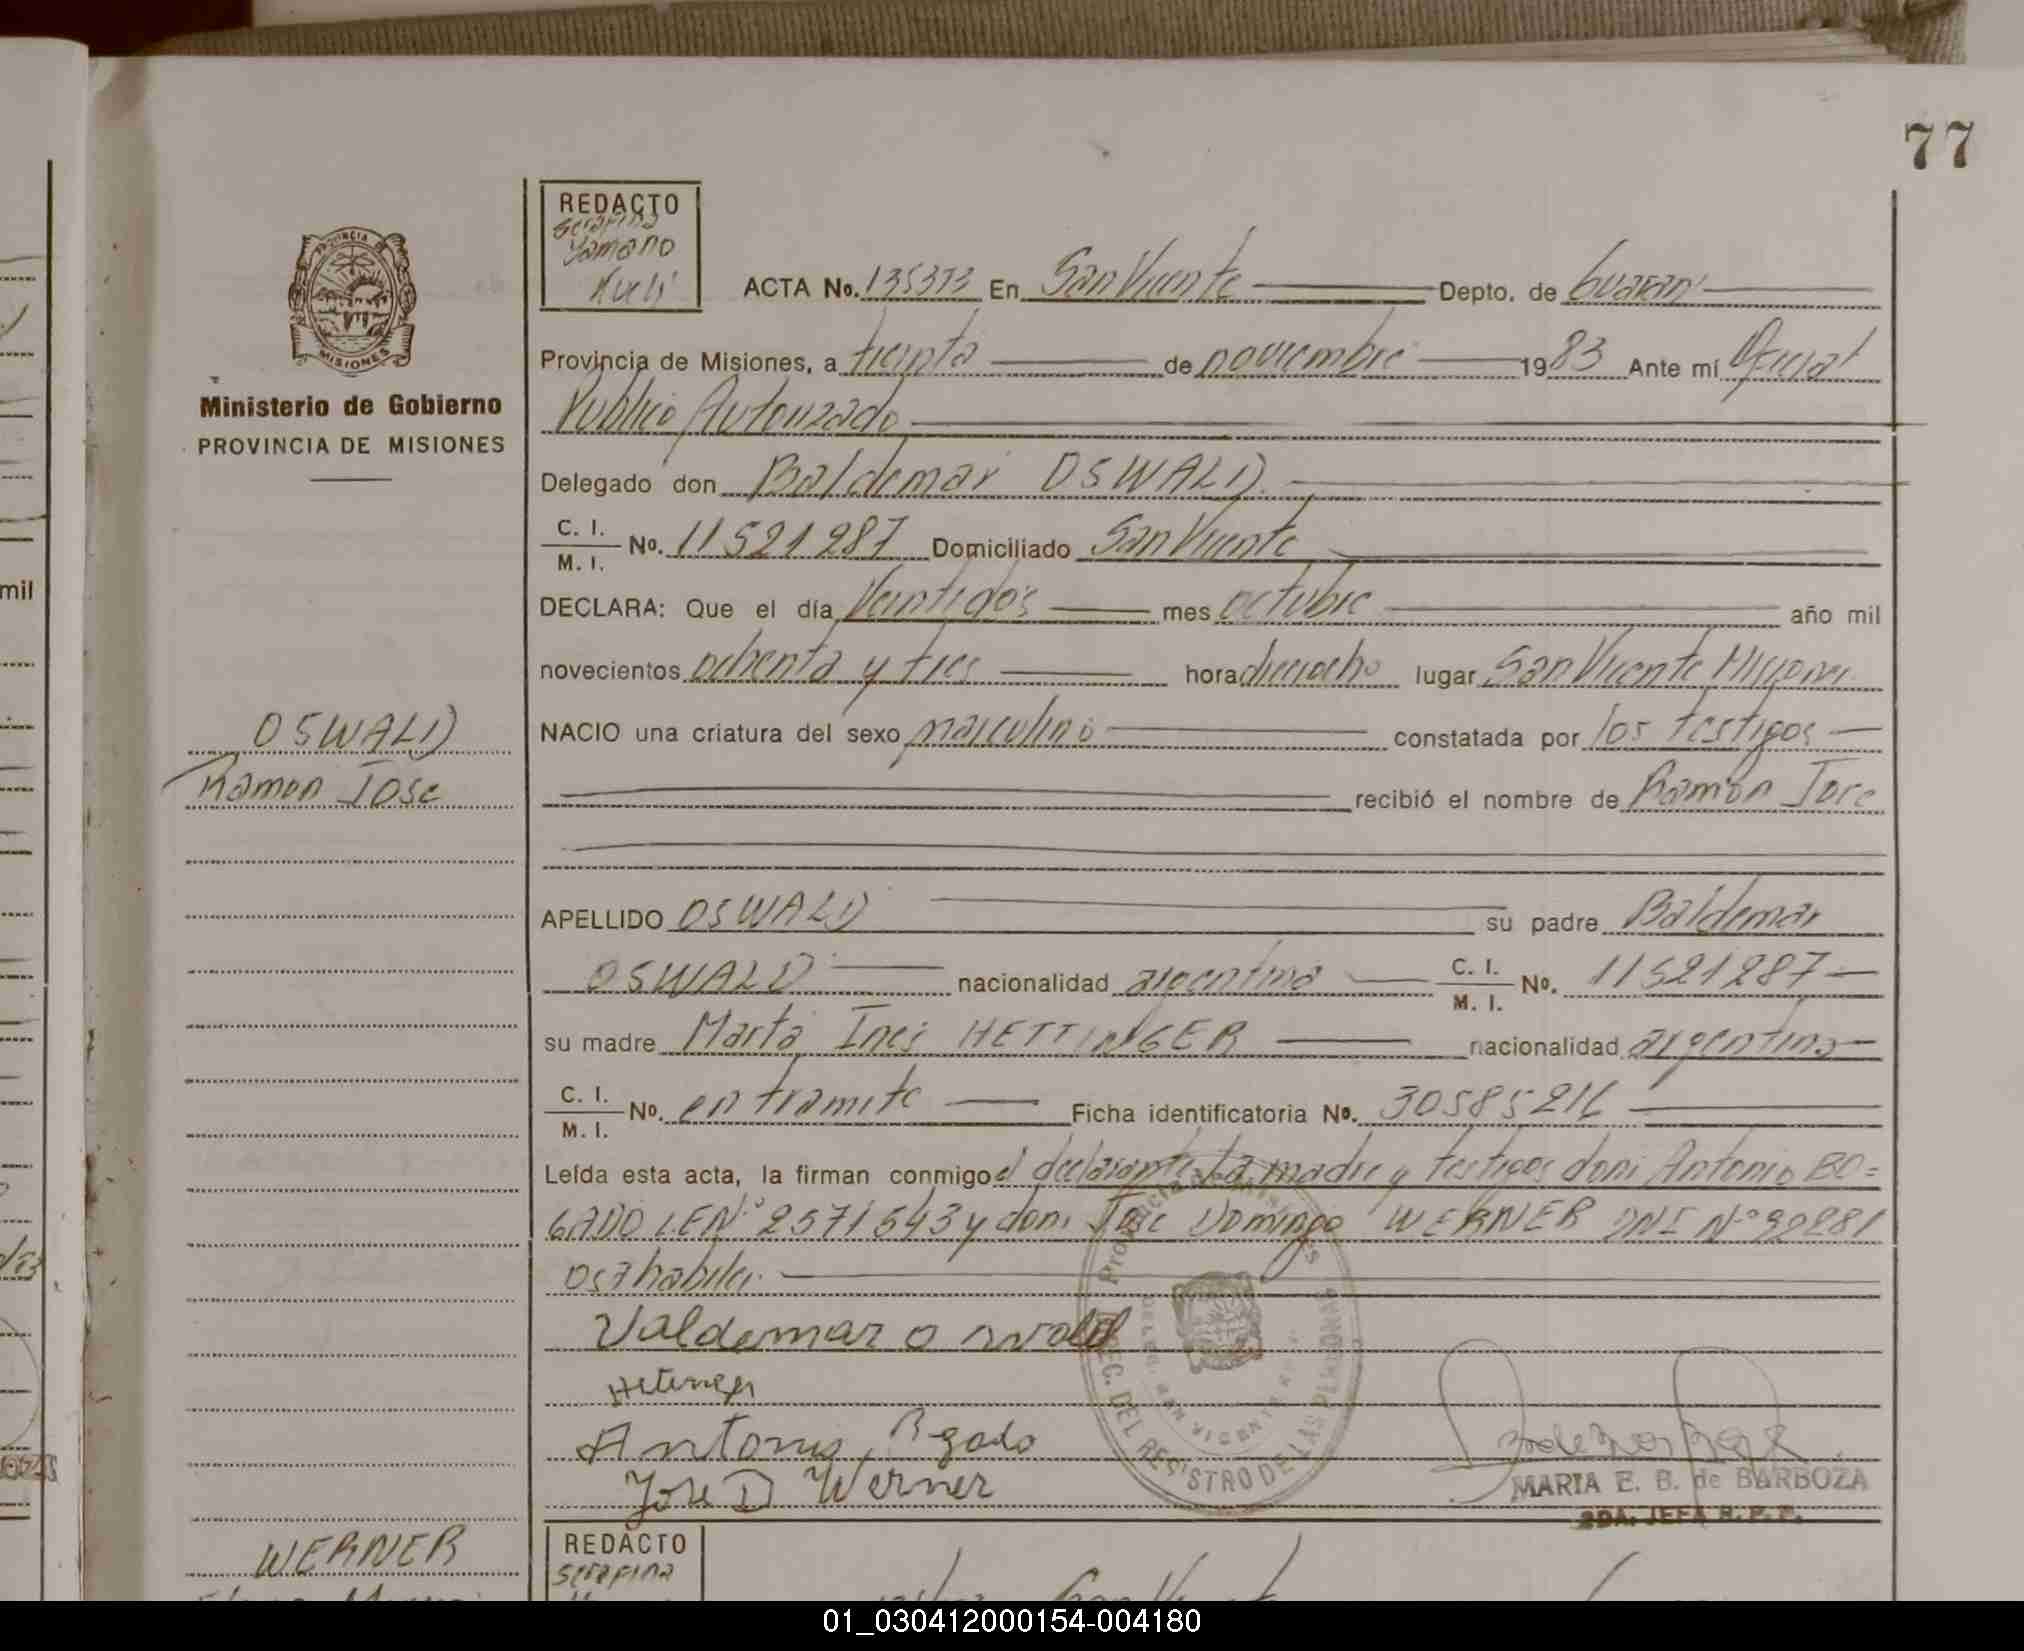 77
REDACTO
Serafina
Yamano
ACTA No. 135373 En San Vicente Depto. de Guarani
Provincia de Misiones, a treinta de noviembre 1983 Ante mí Oficial
Publico Autorizado
PROVINCIA DE
MISIONES
Ministerio de Gobierno
PROVINCIA DE MISIONES
Delegado don Baldemar OSWALD.
C. I.
M. I. No. 11521287 Domiciliado San Vicente
DECLARA: Que el día Veintidós mes octubre año mil
novecientos ochenta y tres hora dieciocho lugar San Vicente Misiones
OSWALD
Ramon Jose
NACIO una criatura del sexo masculino constatada por los testigos
recibió el nombre de Ramón Jose
APELLIDO OSWALD su padre Baldemar
OSWALD nacionalidad argentina C. I. M. I. No. 11521287
su madre Marta Ines HETTINGER nacionalidad argentina
C. I.
M. I. No. en tramite Ficha identificatoria No. 30585216
Leída esta acta, la firman conmigo el declarante, la madre y testigos don: Antonio BO=
GADO L.E.Nº 2571543 y don: Jose Domingo WERNER DNI Nº 92281
057 habiles.
Valdemar oswald
Antonio Bogado
Jose D Werner
Provincia de Misiones
DIREC. DEL REGISTRO DE LAS PERSONAS
DELEG. SAN VICENTE
MARIA E. B. de BARBOZA
2DA. JEFA R. P. P.
WERNER
REDACTO
Serafina
San Vicente
mil
01_030412000154-004180